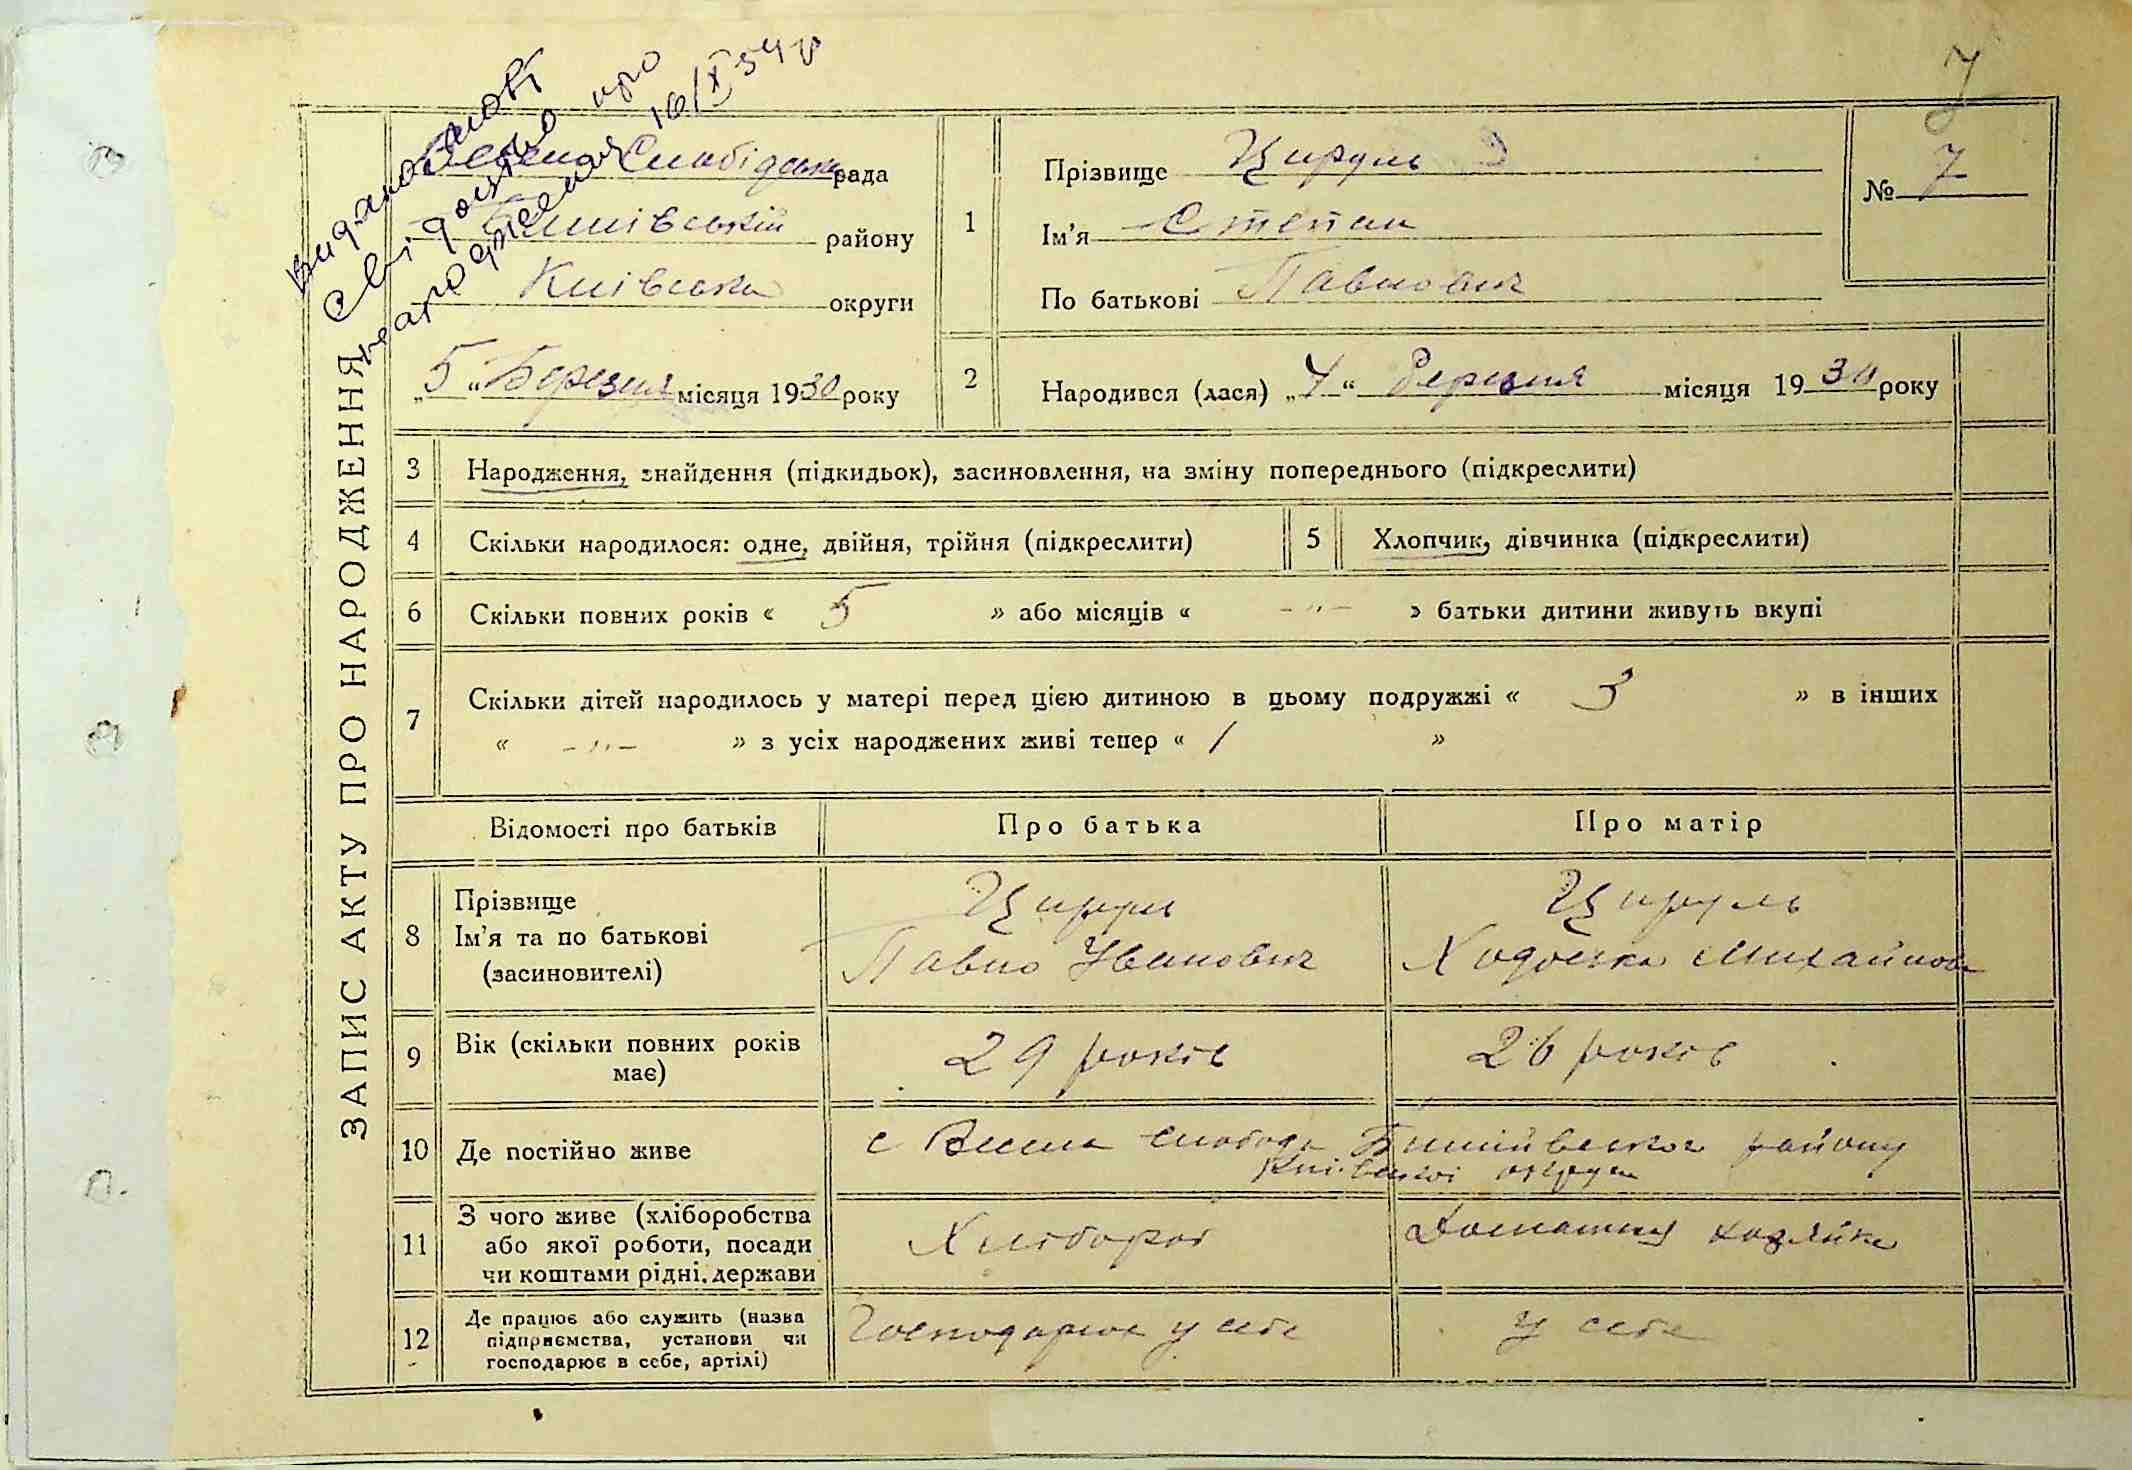 7
Видано нове
свідоцтво про
народження 16/X 54 р
ЗАПИС АКТУ ПРО НАРОДЖЕННЯ
Слобідська рада
району
Київська округи
„5“ Березня місяця 1930 року
1
Прізвище Цируль
Ім'я Степан
По батькові Павлович
№ 7
2
Народився (лася) „4“ Березня місяця 1930 року
3 Народження, знайдення (підкидьок), засиновлення, на зміну попереднього (підкреслити)
4 Скільки народилося: одне, двійня, трійня (підкреслити)
5 Хлопчик, дівчинка (підкреслити)
6 Скільки повних років « 5 » або місяців « -"- » батьки дитини живуть вкупі
7 Скільки дітей народилось у матері перед цією дитиною в цьому подружжі « 3 » в інших
« -"- » з усіх народжених живі тепер « 1 »
Відомості про батьків Про батька Про матір
8
Прізвище
Ім'я та по батькові
(засиновителі)
Цируль
Павло Иванович
Цируль
Ходоська Михайловна
9
Вік (скільки повних років
має)
29 років
26 років
10 Де постійно живе
с Слобода району
Київської округи
11
З чого живе (хліборобства
або якої роботи, посади
чи коштами рідні, держави
Хлібороб
Домашня хозяйка
12
Де працює або служить (назва
підприємства, установи чи
господарює в себе, артілі)
Господарює у себе
у себе